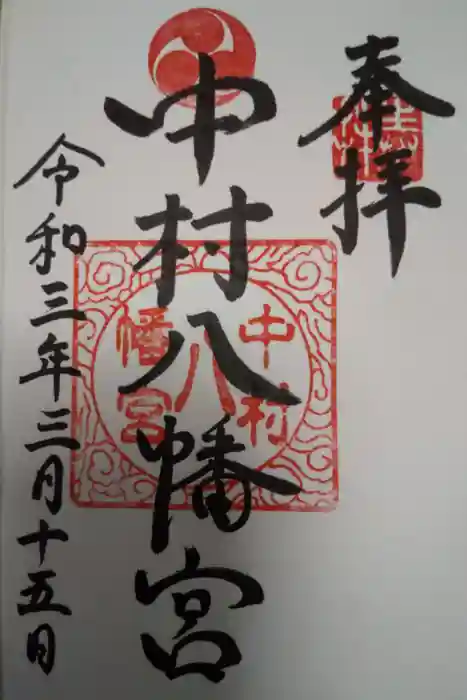 奉拝
中村八幡宮
中村
八
幡宮
令和三年三月十五日